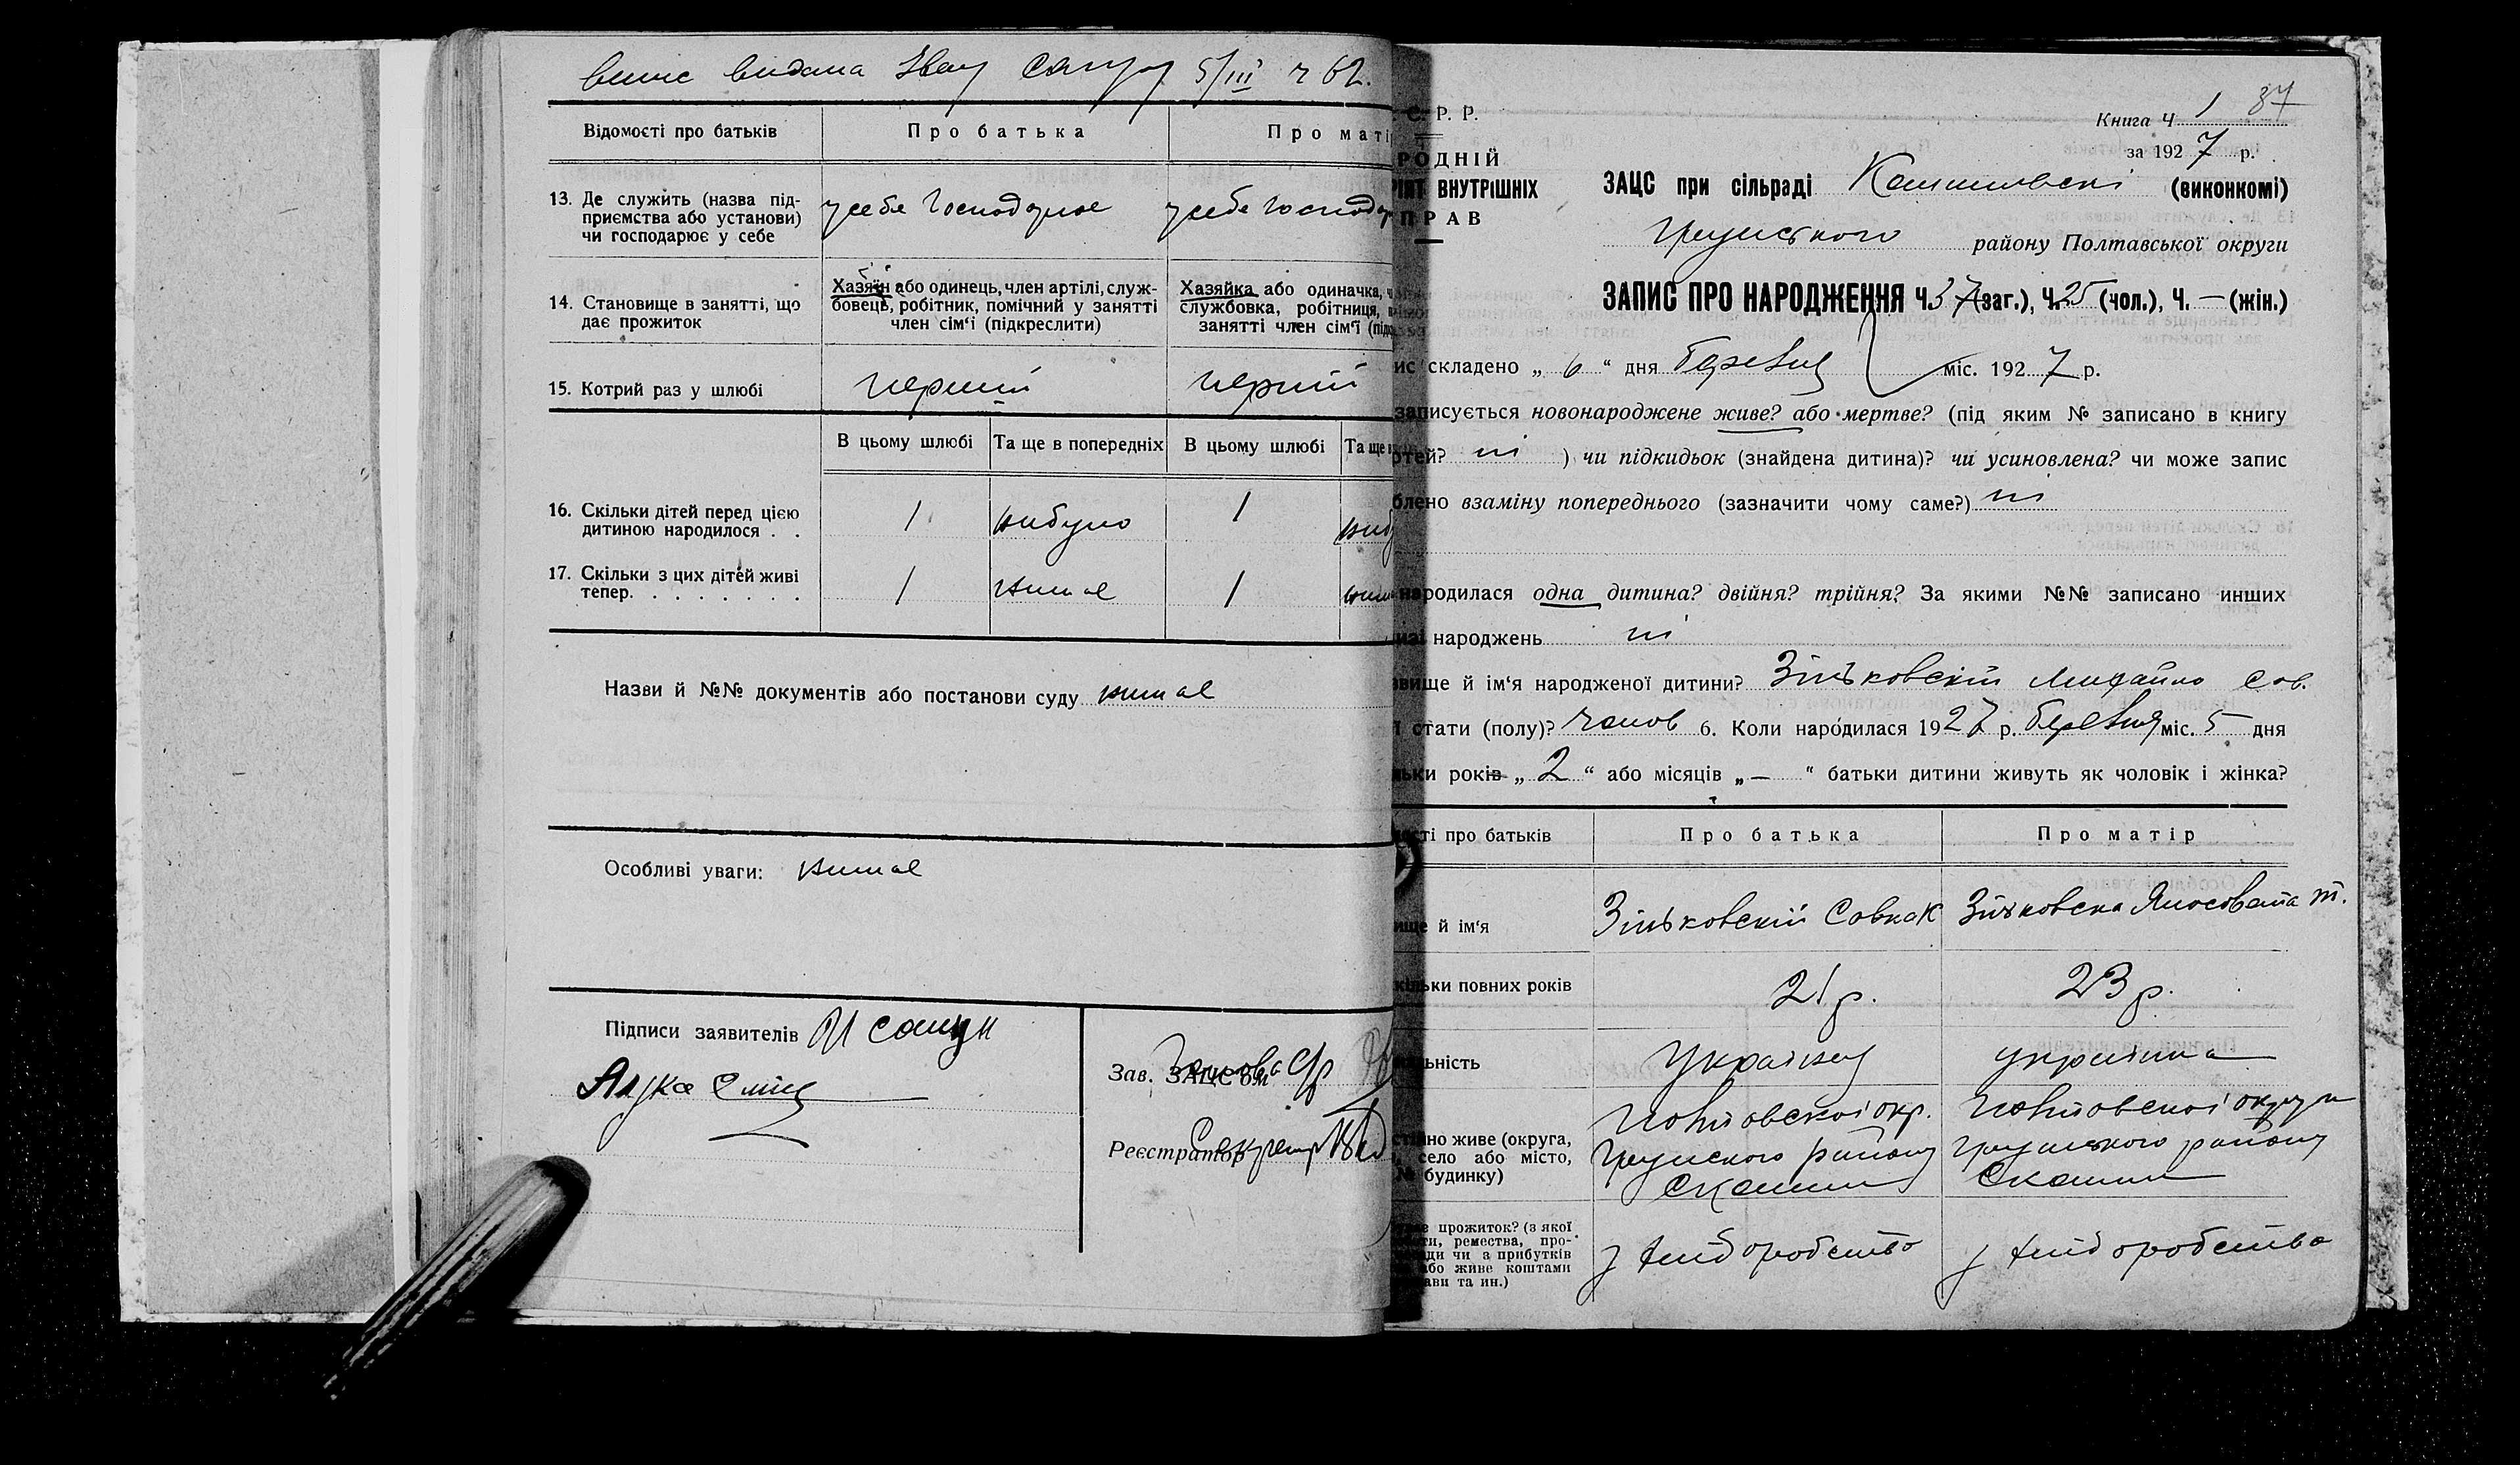 видана 5/III 62.
Відомості про батьків
Про батька
Про маті
13. Де служить (назва під-
приємства або установи)
чи господарює у себе
у себе господарює
у себе господар
14. Становище в занятті, що
дає прожиток
Хазяїн або одинець, член артілі, служ-
бовець, робітник, помічний у занятті
член сім'ї (підкреслити)
Хазяйка або одиначка,
службовка, робітниця,
занятті член сім'ї
15. Котрий раз у шлюбі
перший
перший
В цьому шлюбі
Та ще в попередніх
В цьому шлюбі
Та ще
16. Скільки дітей перед цією
дитиною народилося . .
1
небуло
1
17. Скільки з цих дітей живі
тепер. . . . . . . .
1
нимає
1
Назви й №№ документів або постанови суду нимає
Особливі уваги: нимає
Підписи заявителів
Зав. ЗАЦС'ом
Реєстратор Секретар
С. Р. Р.
РОДНІЙ
ВНУТРІШНІХ
ПРАВ
Книга Ч 1 87
за 1927 р.
ЗАЦС при сільраді (виконкомі)
району Полтавської округи
ЗАПИС ПРО НАРОДЖЕННЯ Ч. 37 (заг.), Ч. 25 (чол.), Ч. — (жін.)
складено „ 6 “ дня Березня міс. 1927 р.
записується новонароджене живе? або мертве? (під яким № записано в книгу
ртей? ні ) чи підкидьок (знайдена дитина)? чи усиновлена? чи може запис
блено взаміну попереднього (зазначити чому саме?) ні
народилася одна дитина? двійня? трійня? За якими №№ записано инших
народжень ні
звище й ім'я народженої дитини? Зіньковскій Михайло Сав.
стати (полу)? чолов 6. Коли народилася 1927 р. березня міс. 5 дня
льки років „ 2 “ або місяців „ — “ батьки дитини живуть як чоловік і жінка?
ості про батьків
Про батька
Про матір
ище й ім'я
Зіньковскій
Зіньковска
кільки повних років
21 р.
23 р.
льність
Українец
українка
стійно живе (округа,
село або місто,
№ будинку)
Полтавскої окр.
району
Полтавскої округи
району
прожиток? (з якої
ти, ремества, про-
ди чи з прибутків
або живе коштами
ави та ин.)
з хліборобства
з хліборобства